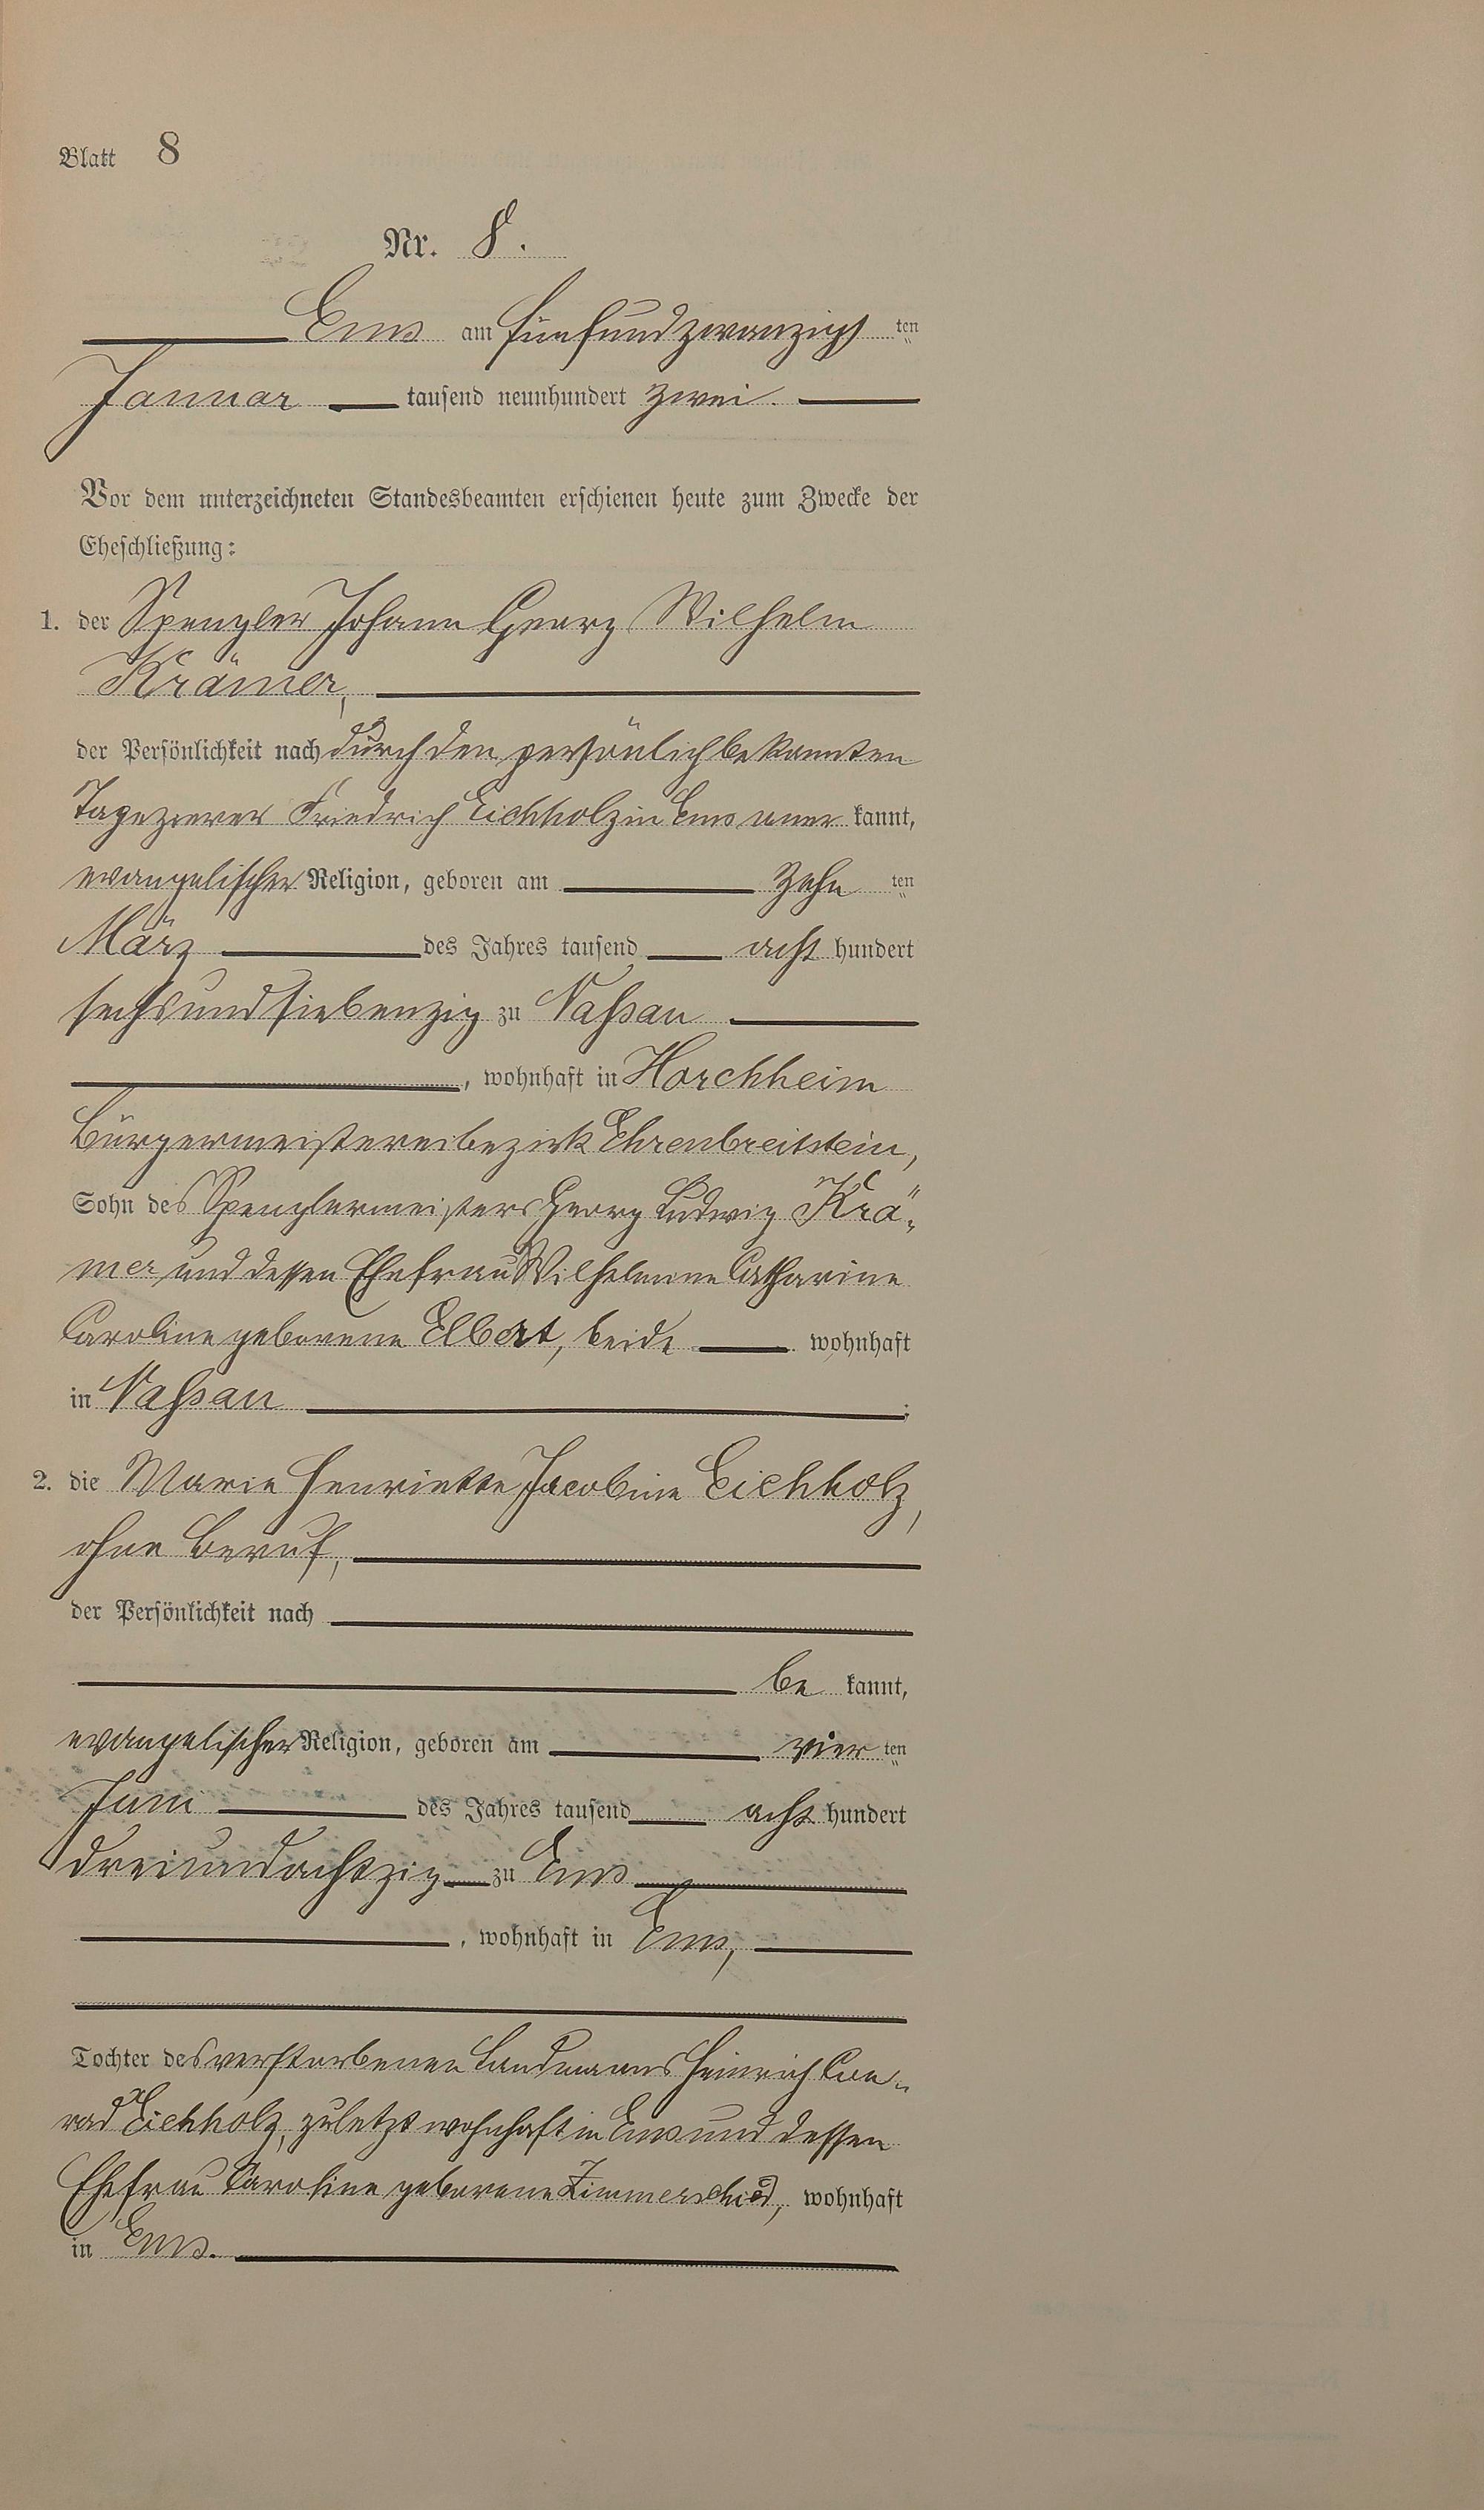 Blatt 8
Nr. 8.
Ems am fünfundzwanzigsten
Januar tausend neunhundert zwei.
Vor dem unterzeichneten Standesbeamten erschienen heute zum Zwecke der
Eheschließung:
1. der Spengler Johann Georg Wilhelm
Krämer,
der Persönlichkeit nach durch den persönlich bekannten
Tapezierer Friedrich Eichholz in Ems aner kannt,
evangelischer Religion, geboren am zehn ten
März des Jahres tausend acht hundert
sechsundsiebenzig zu Naßau
, wohnhaft in Horchheim
Bürgermeistereibezirk Ehrenbreitstein,
Sohn des Spenglermeisters Georg Ludwig Krä-
mer und dessen Ehefrau Wilhelmine Catharine
Caroline geborene Elbert, beide wohnhaft
in Naßau ;
2. die Marie Henriette Jacobine Eichholz,
ohne Beruf,
der Persönlichkeit nach
be kannt,
evangelischer Religion, geboren am vier ten
Juni des Jahres tausend acht hundert
dreiundachtzig zu Ems
, wohnhaft in Ems,
Tochter des verstorbenen Landmanns Heinrich Con-
rad Eichholz, zuletzt wohnhaft in Ems und dessen
Ehefrau Caroline geborene Zimmerschied, wohnhaft
in Ems.